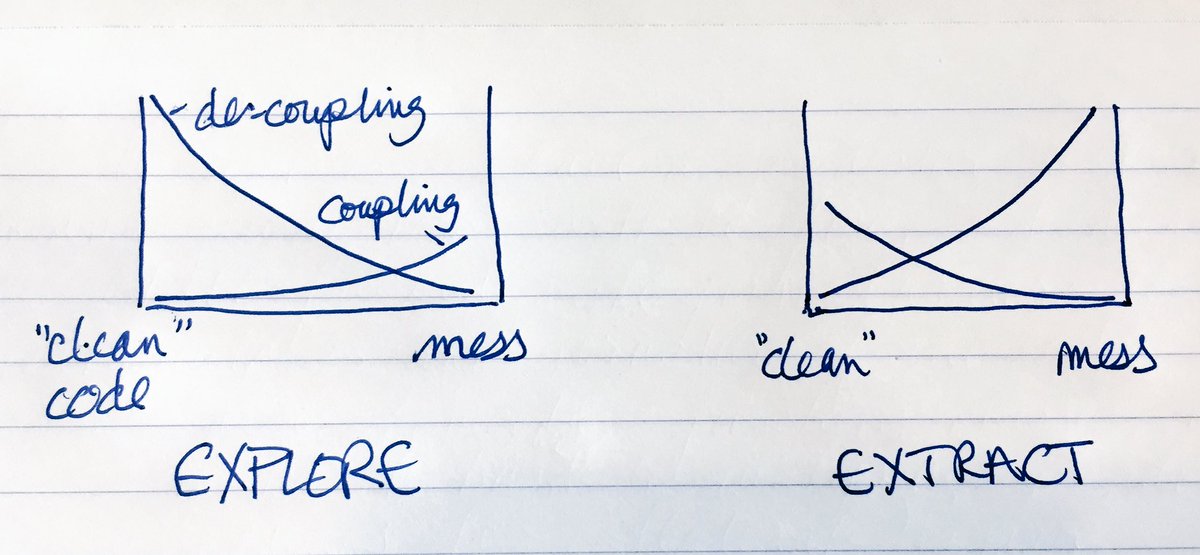 de-coupling
coupling
"clean"
code
mess
EXPLORE
"clean"
mess
EXTRACT